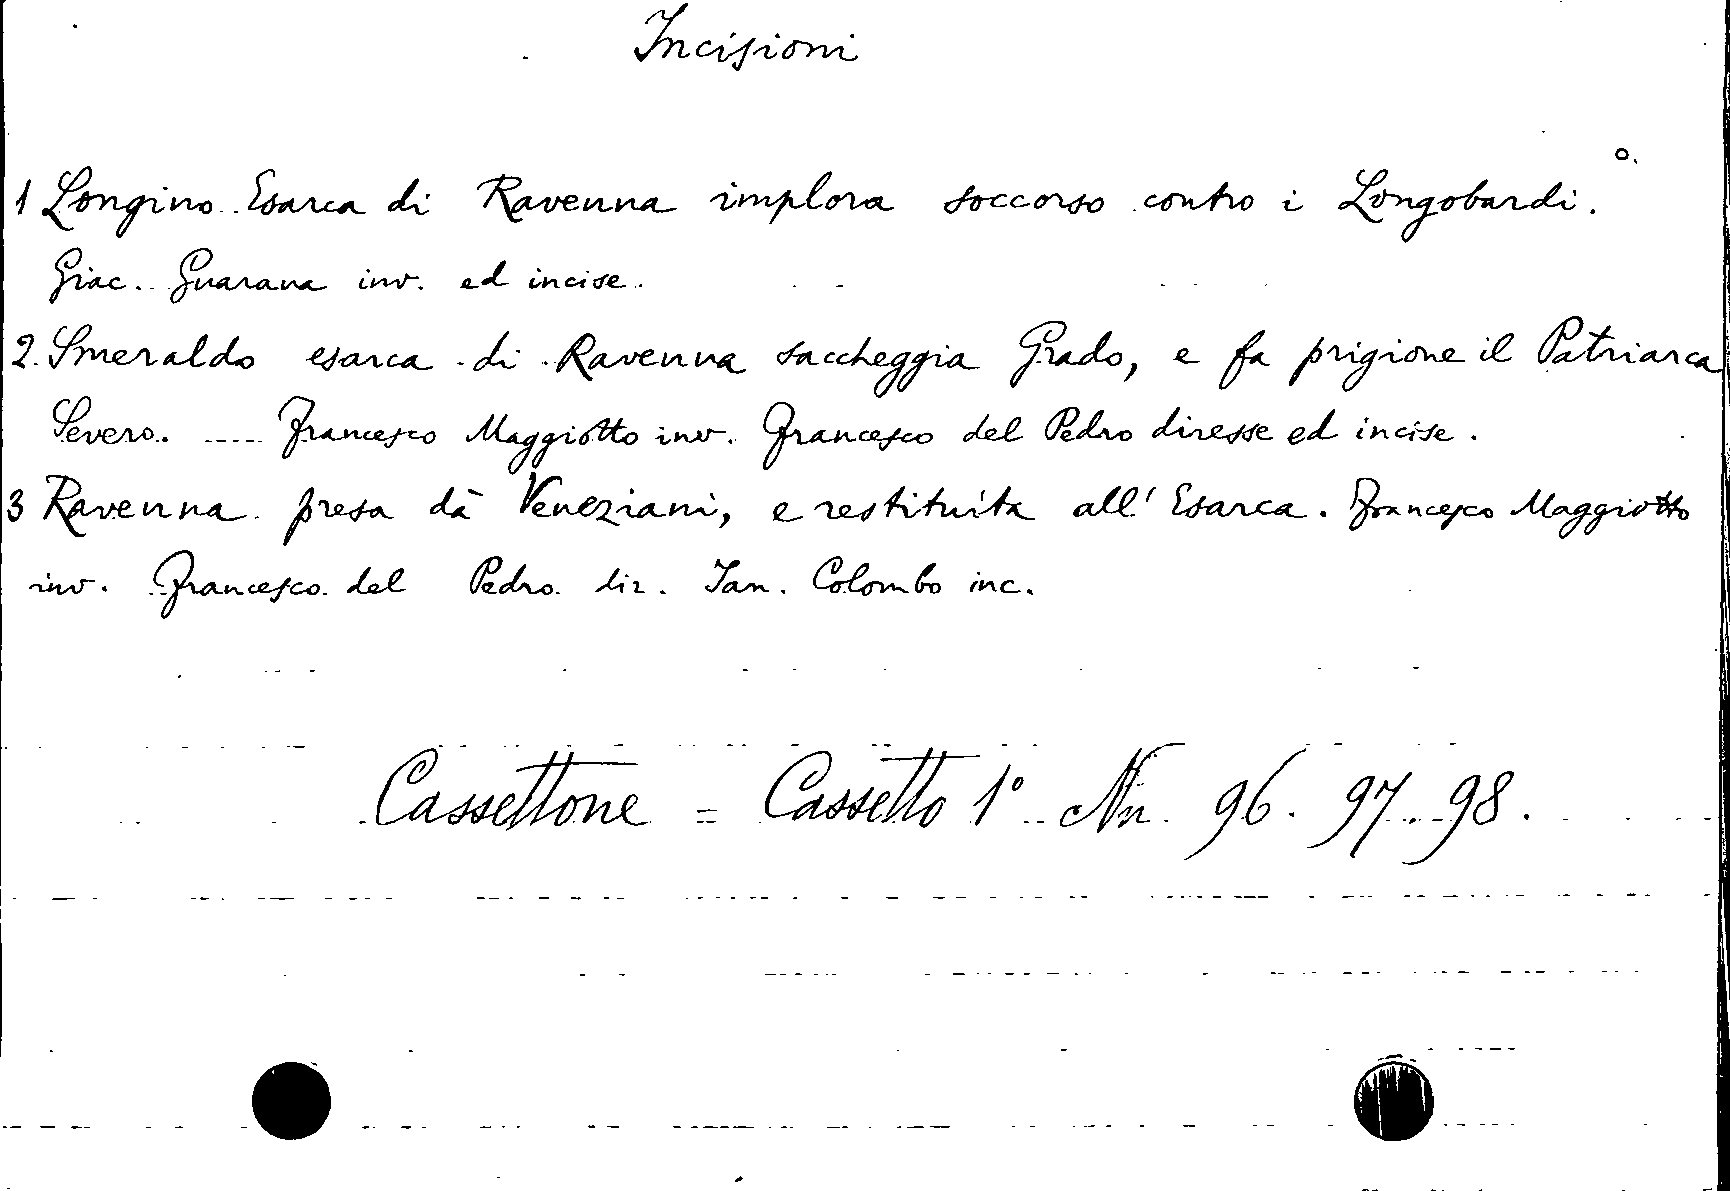 Incisioni
1 Longino Esarca di Ravenna implora soccorso contro i Longobardi.
Giac. Guarana inv. ed incise.
2. Smeraldo esarca di Ravenna saccheggia Grado, e fa prigione il Patriarca
Severo. ..... Francesco Maggiotto inv. Francesco del Pedro diresse ed incise.
3 Ravenna presa dà Veneziani, e restituita all' Esarca. Francesco Maggiotto
inv. Francesco del Pedro dir. Jan. Colombo inc.
Cassettone = Cassetto 1° Nn. 96. 97. 98.